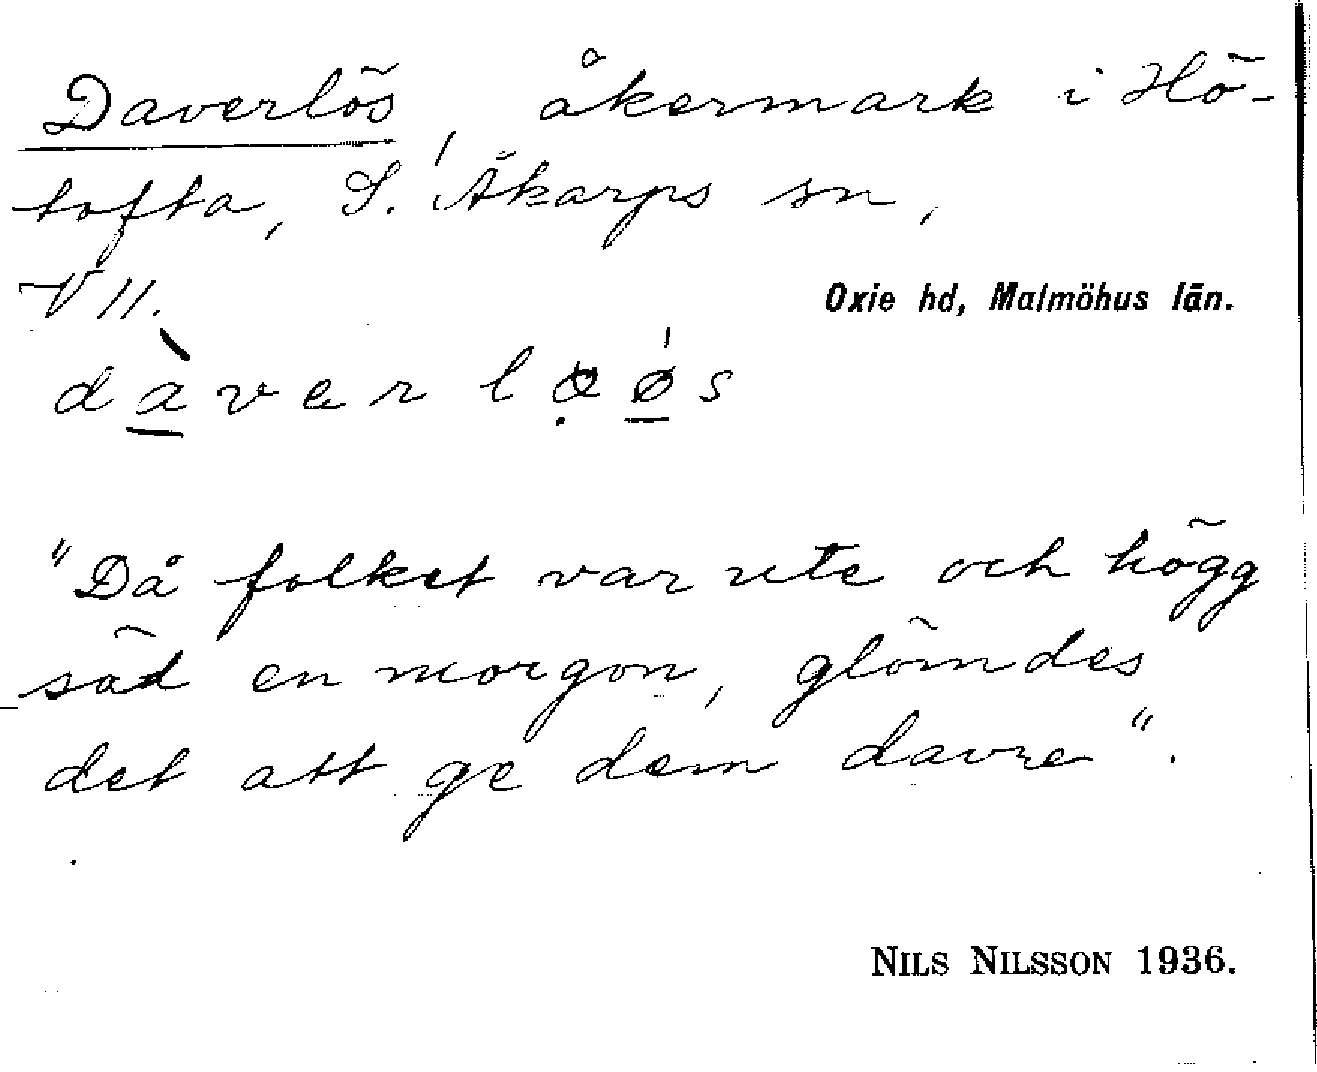 Daverlös, åkermark i Hö-
tofta, S. Åkarps sn,
VII.
Oxie hd, Malmöhus län.
dàverlœǿs
"Då folket var ute och högg
säd en morgon, glömdes
det att ge dem davre".
NILS NILSSON 1936.